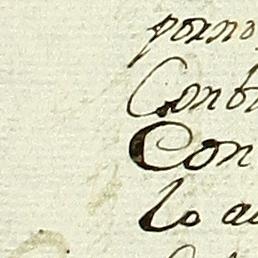 porno
Contr
Con
lo a